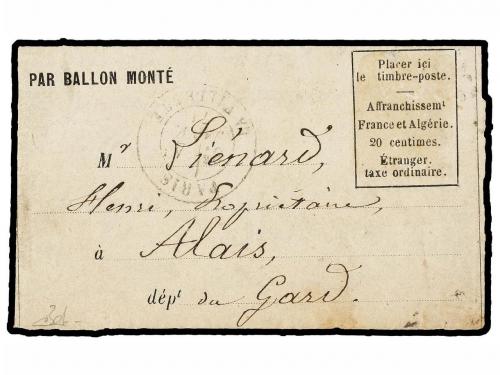 PAR BALLON MONTÉ
Placer ici
le timbre-poste.
Affranchissemt
France et Algérie.
20 centimes.
Étranger.
taxe ordinaire.
PARIS
Mr Liénard,
Henri, Propriétaire,
à Alais,
dépt du Gard.